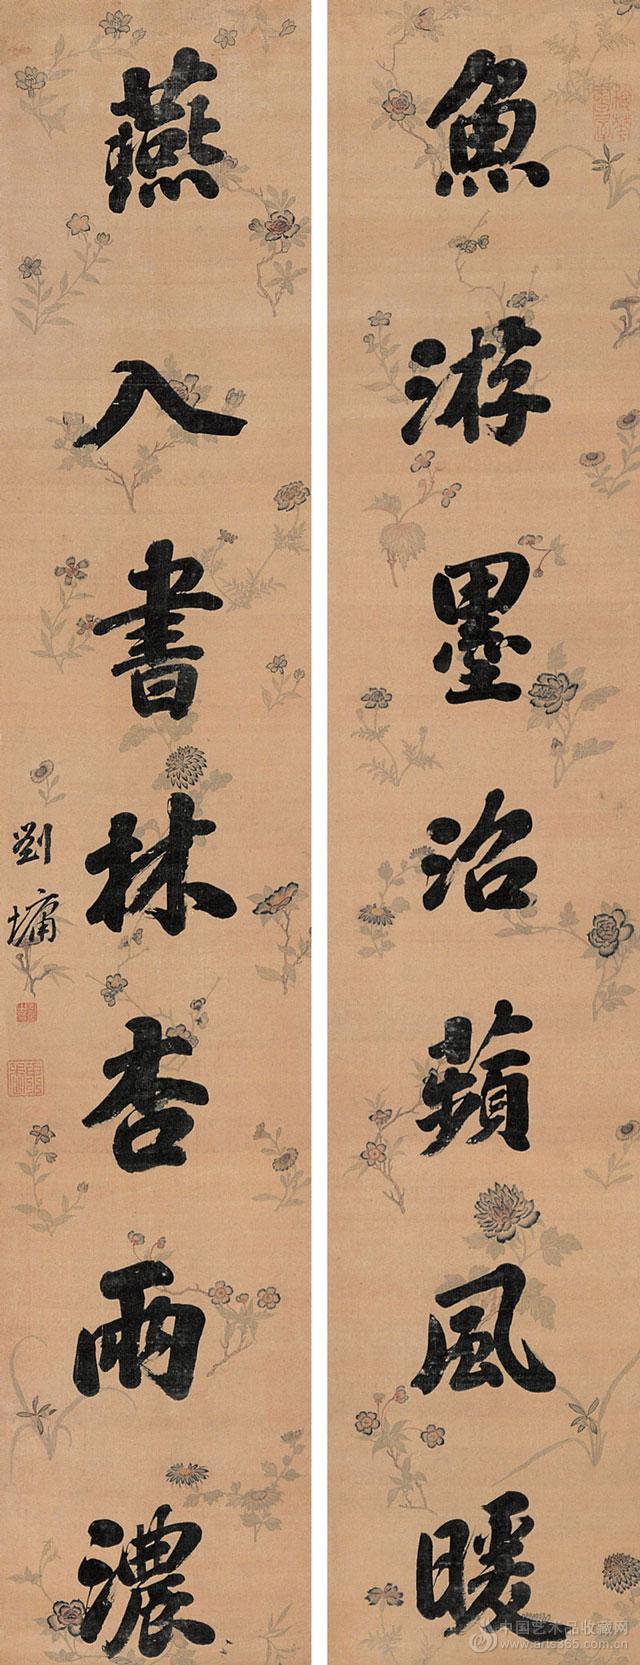 魚游墨沼蘋風暖
燕入書林杏雨濃
劉墉
中国艺术品收藏网
www.arts365.com.cn